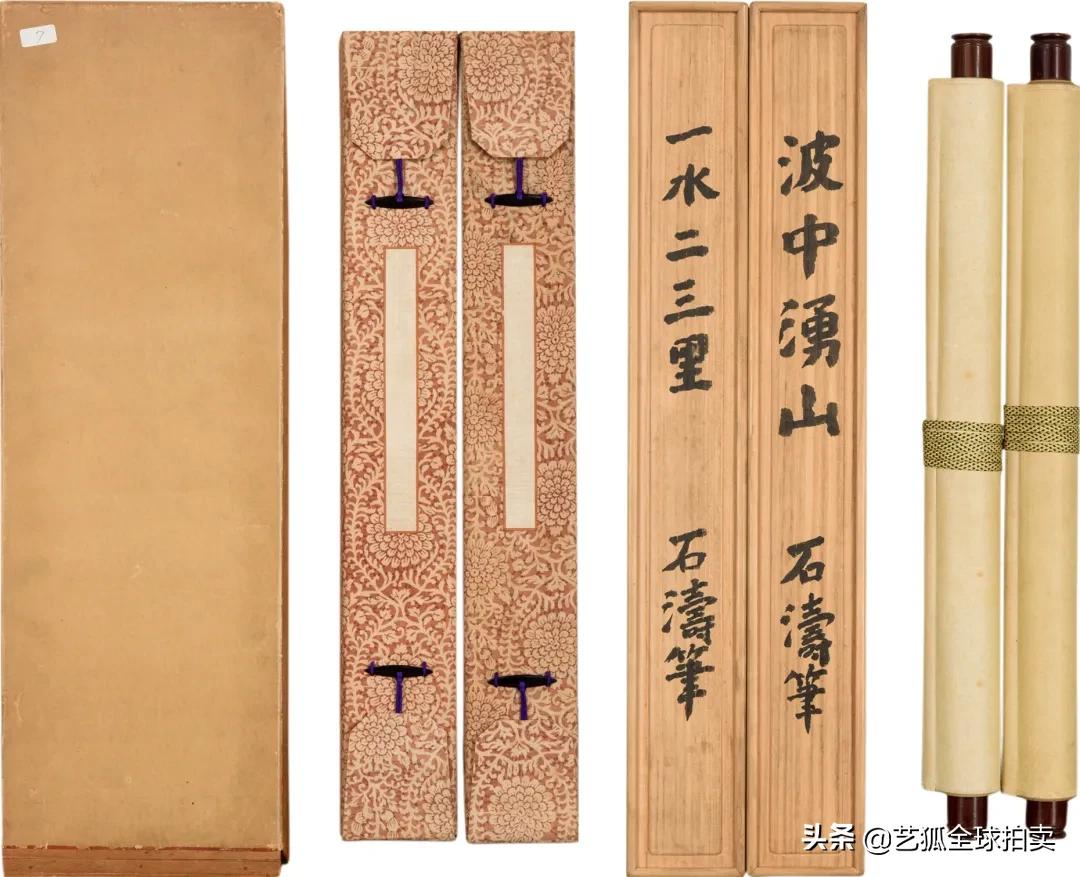 7
波中湧山
石濤筆
一水二三里
石濤筆
头条 @艺狐全球拍卖